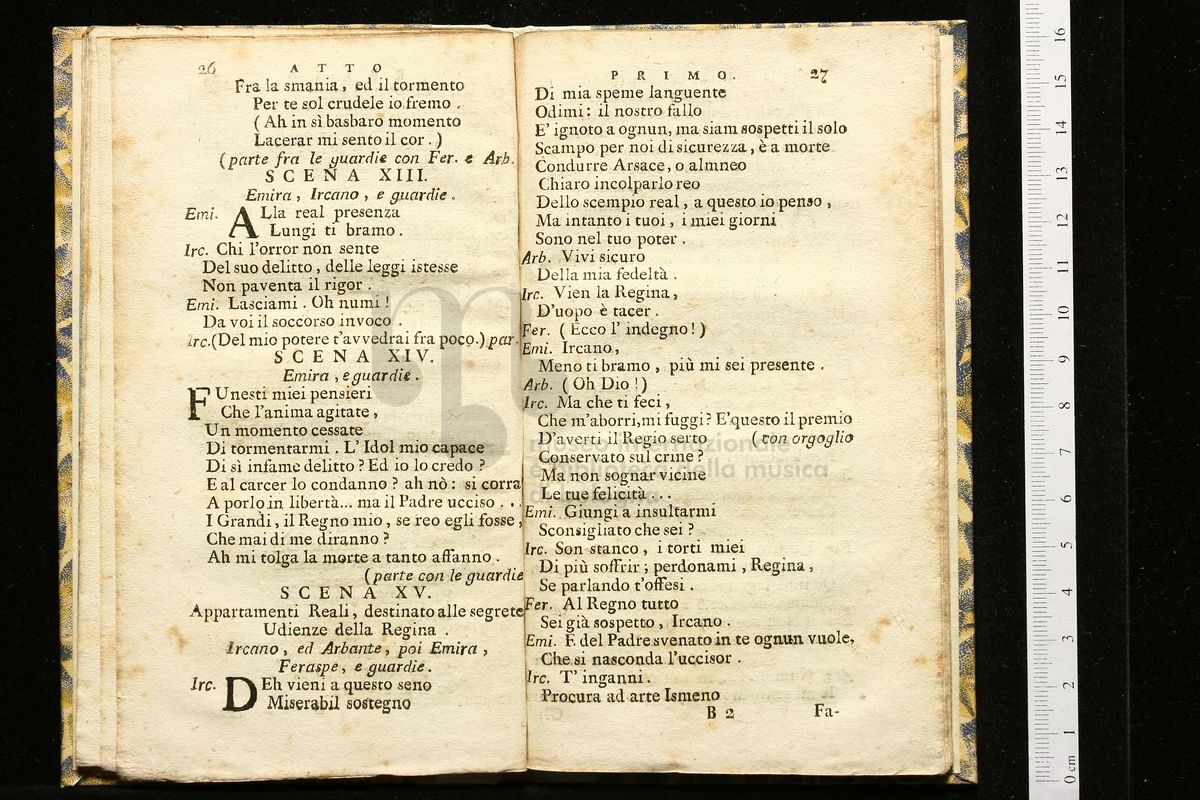 26 ATTO
Fra la smania, ed il tormento
Per te sol crudele io fremo.
(Ah in sì basbaro momento
Lacerar mi sento il cor.)
(parte fra le guardie con Fer. e Arb.
SCENA XIII.
Emira, Ircano, e guardie.
Emi. ALla real presenza
Lungi ti bramo.
Irc. Chi l'orror non sente
Del suo delitto, delle leggi istesse
Non paventa il rigor.
Emi. Lasciami. Oh numi!
Da voi il soccorso invoco.
Irc. (Del mio potere t'avvedrai fra poco.) par.
SCENA XIV.
Emira, e guardie.
FUnesti miei pensieri
Che l'anima agitate,
Un momento cessate
Di tormentarmi. L' Idol mio capace
Di sì infame delitto? Ed io lo credo?
E al carcer lo condanno? ah nò: si corra
A porlo in libertà... ma il Padre ucciso...
I Grandi, il Regno mio, se reo egli fosse,
Che mai di me diranno?
Ah mi tolga la morte a tanto affanno.
(parte con le guardie
SCENA XV.
Appartamenti Reali, destinato alle segrete
Udienze della Regina.
Ircano, ed Arbante, poi Emira,
Feraspe, e guardie.
Irc. DEh vieni a questo seno
Miserabil sostegno
PRIMO. 27
Di mia speme languente
Odimi: il nostro fallo
E' ignoto a ognun, ma siam sospetti il solo
Scampo per noi di sicurezza, è a morte
Condurre Arsace, o almneo
Chiaro incolparlo reo
Dello scempio real, a questo io penso,
Ma intanto i tuoi, i miei giorni
Sono nel tuo poter.
Arb. Vivi sicuro
Della mia fedeltà.
Irc. Vien la Regina,
D'uopo è tacer.
Fer. (Ecco l' indegno!)
Emi. Ircano,
Meno ti bramo, più mi sei presente.
Arb. (Oh Dio!)
Irc. Ma che ti feci,
Che m'aborri, mi fuggi? E' questo il premio
D'averti il Regio serto (con orgoglio
Conservato sul crine?
Ma non sognar vicine
Le tue felicità...
Emi. Giungi a insultarmi
Sconsigliato che sei?
Irc. Son stanco, i torti miei
Di più soffrir; perdonami, Regina,
Se parlando t'offesi.
Fer. Al Regno tutto
Sei già sospetto, Ircano.
Emi. E del Padre svenato in te ognun vuole,
Che si nasconda l'uccisor.
Irc. T' inganni.
Procura ad arte Ismeno
B 2 Fa-
museo internazionale
e biblioteca della musica
0 cm 1 2 3 4 5 6 7 8 9 10 11 12 13 14 15 16